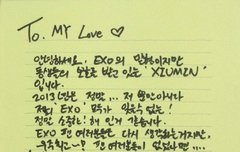 To. MY Love ♡
안녕하세요. EXO의 맏형이지만
동생들의 오늘도 받고 있는 'XIUMIN'
입니다.
2013년은 정말... 저 뿐만아니라
저희 EXO 모두가 잊을수 없는!
정말 소중한! 해 인거 같습니다.
EXO 팬 여러분들은 다시 생각하는거지만,
팬 여러분들이 없었다면....